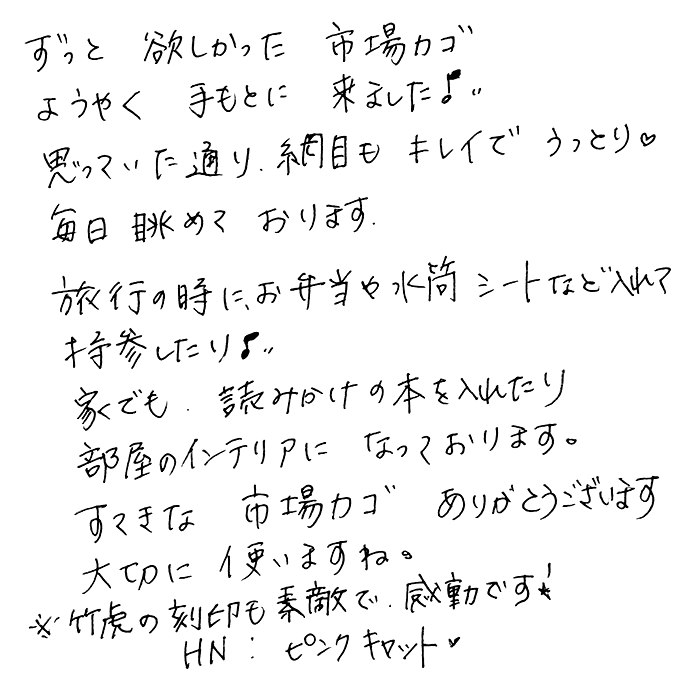 ずっと 欲しかった 市場カゴ
ようやく 手もとに 来ました♪"
思っていた通り、網目も キレイで うっとり♡
毎日 眺めて おります.
旅行の時に、お弁当や水筒 シートなど入れて
持参したり♪"
家でも、読みかけの本を入れたり
部屋のインテリアに なっております。
すてきな 市場カゴ ありがとうございます
大切に 使いますね。
※竹虎の刻印も素敵で、感動です!
HN: ピンクキャット♥